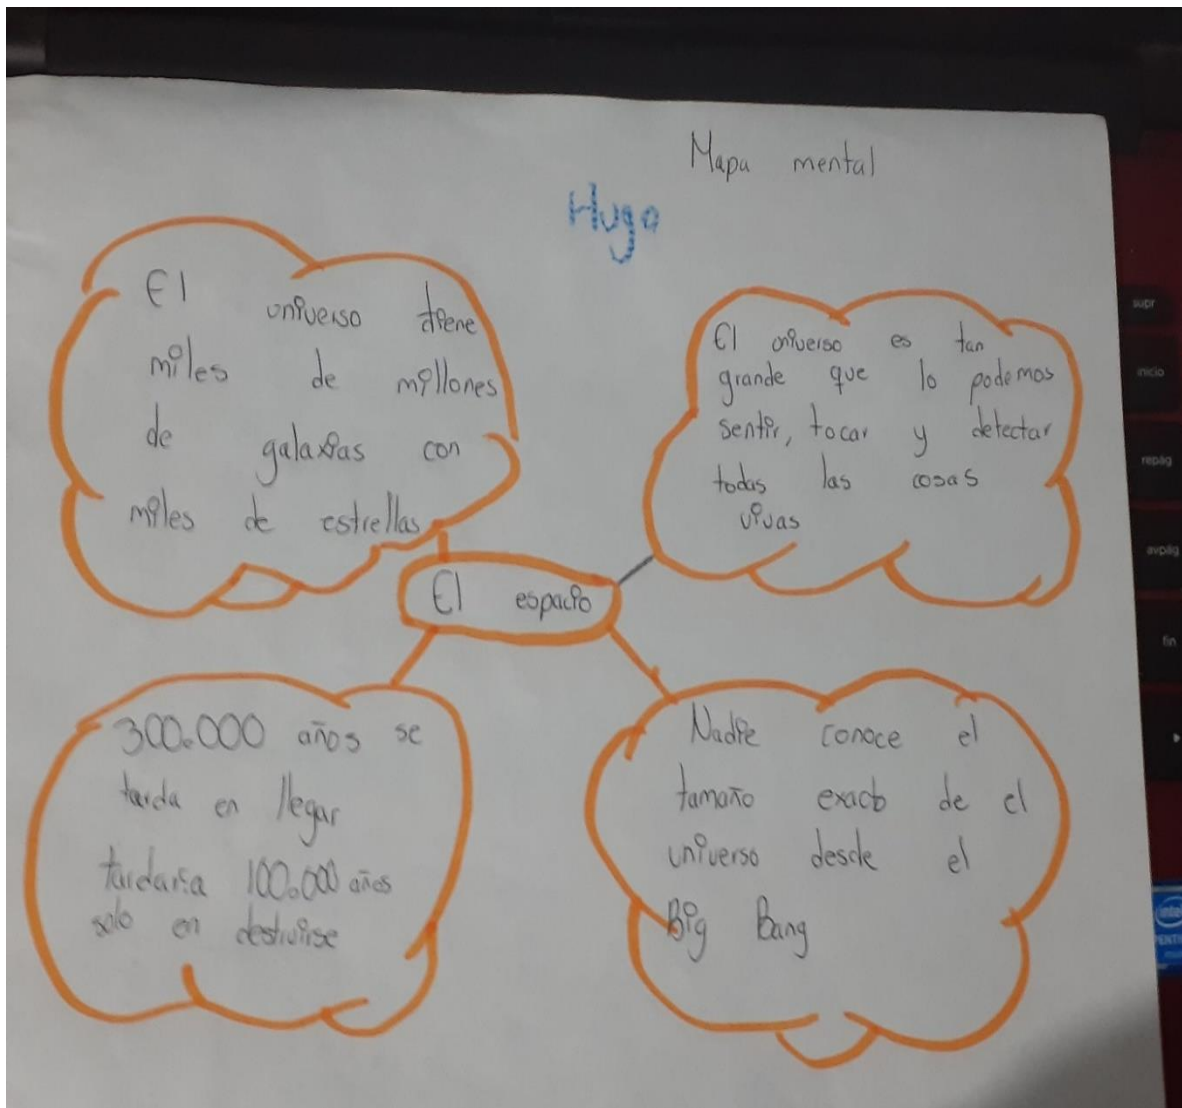 Mapa mental
Hugo
El universo tiene
miles de millones
de galaxias con
miles de estrellas
El universo es tan
grande que lo podemos
sentir, tocar y detectar
todas las cosas
vivas
El espacio
300.000 años se
tarda en llegar
tardaria 100.000 años
solo en destruirse
Nadie conoce el
tamaño exacto de el
universo desde el
Big Bang
supr
inicio
repág
avpág
fin
intel